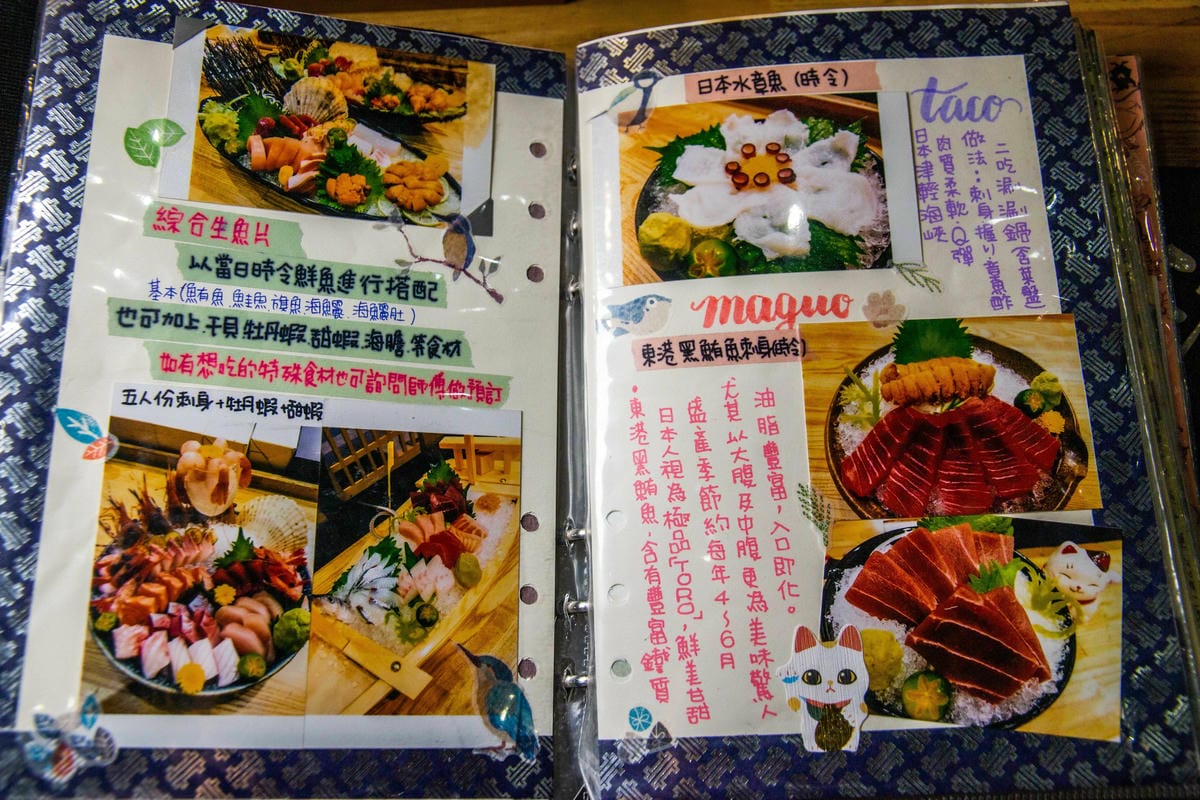 綜合生魚片
以當日時令鮮魚進行搭配
基本(鮪魚.鮭魚.旗魚.海鱺.海鱺肚)
也可加上.干貝.牡丹蝦.甜蝦.海膽.等食材
如有想吃的特殊食材也可詢問師傅做預訂
五人份刺身+牡丹蝦+甜蝦
日本水章魚(時令)
taco
二吃涮涮鍋(含菜盤)
做法:刺身.握り.章魚酢
肉質柔軟.Q彈
日本津輕海峽
maguo
東港黑鮪魚刺身(時令)
油脂豐富,入口即化。
尤其以大腹及中腹更為美味驚人
盛產季節約每年4~6月
日本人視為極品「TORO」,鮮美甘甜
・東港黑鮪魚,含有豐富鐵質